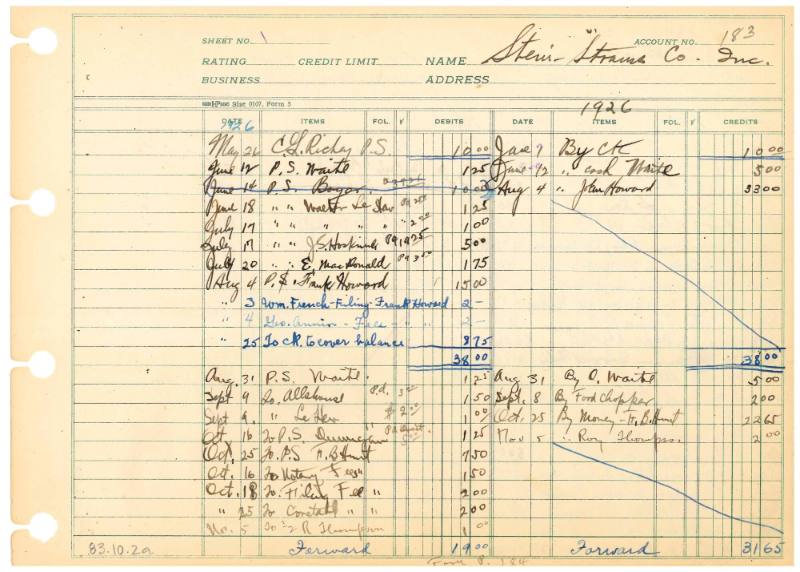 SHEET NO. 1
ACCOUNT NO. 183
RATING CREDIT LIMIT NAME Stein-Strauss Co. Inc.
BUSINESS ADDRESS
Size 0107, Form 5
1926
DATE ITEMS FOL. DEBITS DATE ITEMS FOL. CREDITS
1926
May 26 C.L. Richey P.S. 10 00 June 9 By CK 10 00
June 12 P.S. Waite 1 25 June 12 " cash Waite 5 00
June 14 P.S. 10 00 Aug 4 " John Howard 33 00
June 18 " " Walter Le Hew 1 25
July 17 " " " " 1 00
July 17 " " J.S. Hoskins 5 00
July 20 " " E. MacDonald 1 75
Aug 4 P.S. Frank Howard 15 00
" 3 Wm. French-Filing-Frank Howard 2 -
" 4 Geo. - Fees - " " 2 -
" 25 To CK. to cover balance 8 75
38 00 38 00
Aug. 31 P.S. Waite. 1 25 Aug 31 By O. Waite 5 00
Sept 9 To. Pd. 1 50 Sept. 8 By Food Chopper 2 00
Sept 9. " Le Hew $ 2 00 1 00 Oct, 25 By Money - Fr. B. Hunt 22 65
Oct 16 To P.S. 1 25 Nov 5 " Roy Thompson. 2 00
Oct, 25 To. P.S. Fr. B Hunt 7 50
Oct. 16 To Notary Fees 1 50
Oct. 18 To. Filing Fee " 2 00
" 25 To " 2 00
No. 5 To R Thompson 1 00
83.10.2a Forward 19 00 Forward 31 65
Forw P. 184